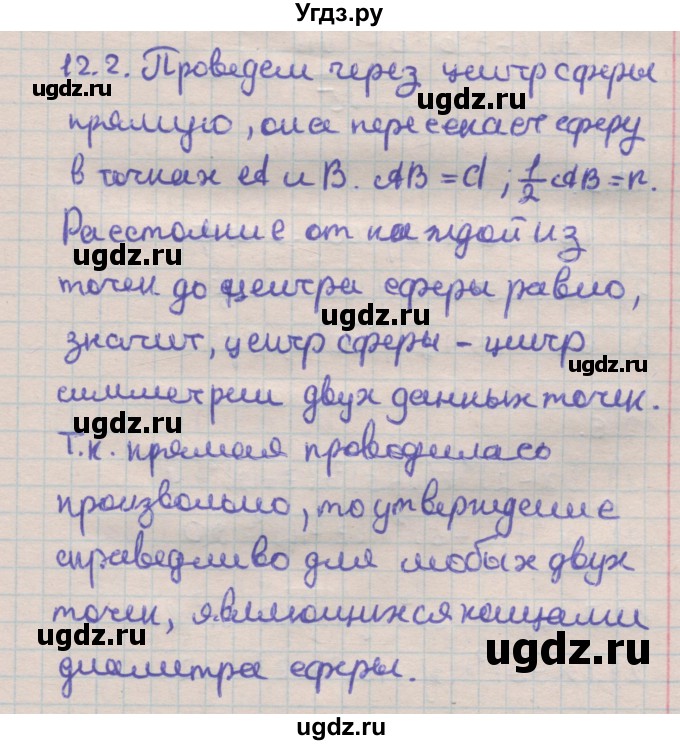 Угдз.ру
12.2. Проведем через центр сферы
ugdz.ru ugdz.ru
прямую, она пересекает сферу
в точках A и B. AB = d ; 1/2 AB = r.
ugdz.ru
Расстояние от каждой из
ugdz.ru
точек до центра сферы равно,
ugdz.ru
значит, центр сферы – центр
ugdz.ru
симметрии двух данных точек.
ugdz.ru ugdz.ru
Т.к. прямая проводилась
произвольно, то утверждение
ugdz.ru
справедливо для любых двух
ugdz.ru
точек, являющихся концами
ugdz.ru ugdz.ru
диаметра сферы.
ugdz.ru